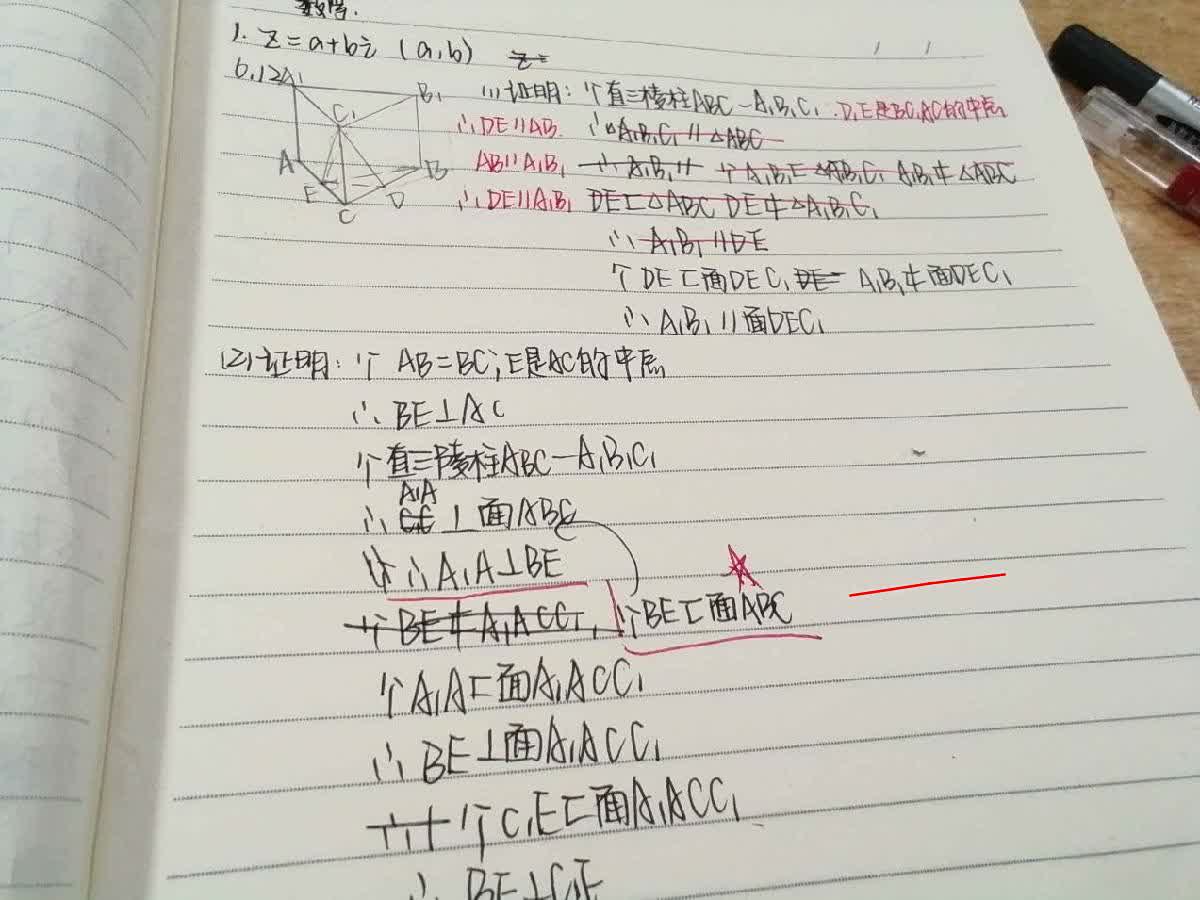 数学.
1. z=a+bi (a,b) z=
6.12 A₁ B₁ C₁ A B E D C
(1)证明: ∵直三棱柱ABC-A₁B₁C₁. D,E是BC,AC的中点
∴DE//AB. ∴△A₁B₁C₁//△ABC
AB//A₁B₁ ∴A₁B₁// ∵A₁B₁E △A₁B₁C₁ A₁B₁⊄△ABC
∴DE//A₁B₁ DE⊂△ABC DE⊄△A₁B₁C₁
∴A₁B₁//DE
∵DE⊂面DEC₁ DE A₁B₁⊄面DEC₁
∴A₁B₁//面DEC₁
(2)证明: ∵AB=BC, E是AC的中点
∴BE⊥AC
∵直三棱柱ABC-A₁B₁C₁
A₁A
∴CC⊥面ABC
∴A₁A⊥BE
∵BE⊄A₁ACC₁, ∵BE⊂面ABC
∵A₁A⊂面A₁ACC₁
∴BE⊥面A₁ACC₁
∵C₁E⊂面A₁ACC₁
∴BE⊥C₁E